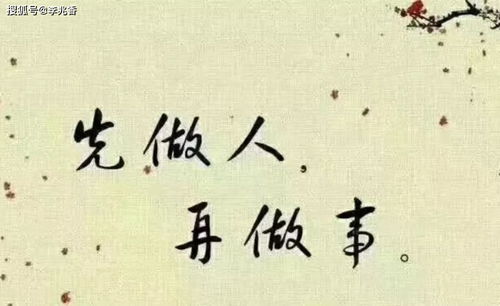 搜狐号@李兆香
先做人，
再做事。